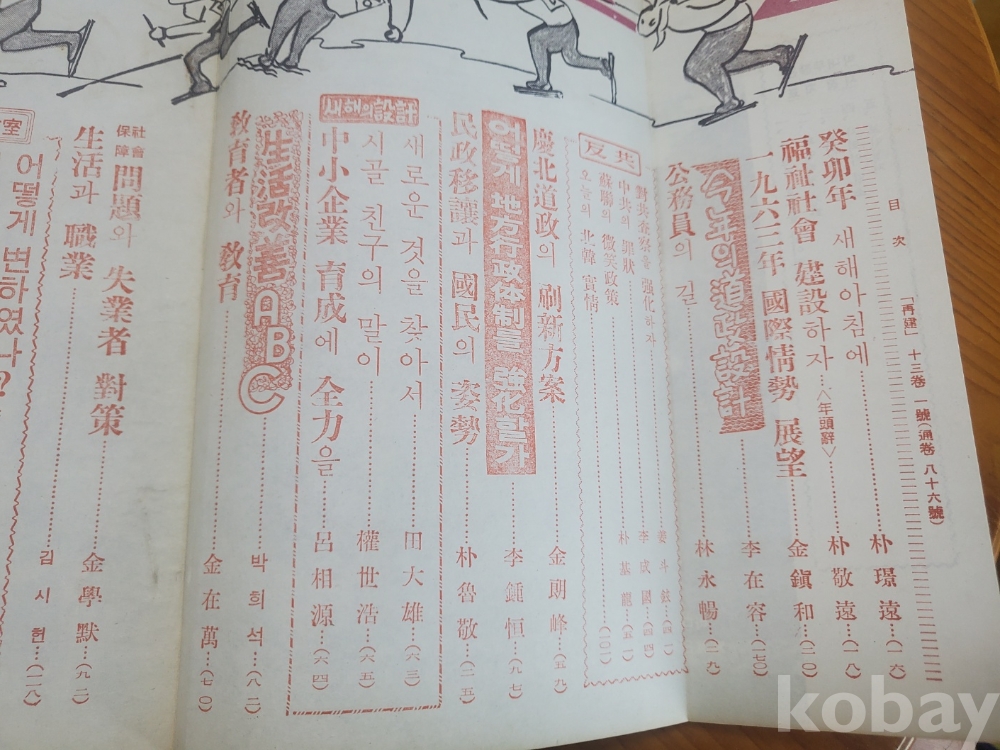 目次
「再建」 十三卷 一號(通卷 八十六號)
癸卯年 새해아침에 朴璟遠 (一六)
福祉社會 建設하자 <年頭辭> 朴敬遠 (一八)
一九六三年 國際情勢 展望 金鎭和 (二〇)
今年의 道政設計 李在容 (一七〇)
公務員의 길 林永暢 (二九)
反共
對共査察을 強化하자 姜斗鉉 (四一)
中共의 罪狀 李成國 (四四)
蘇聯의 微笑政策 朴基龍 (五一)
오늘의 北韓 實情 (一〇一)
慶北道政의 刷新方案 金朗峰 (五九)
어떻게 地方行政体制를 強化할가 李鍾恒 (九七)
民政移讓과 國民의 姿勢 朴魯敬 (二五)
새해의 設計
새로운 것을 찾아서 田大雄 (六三)
시골 친구의 말이 權世浩 (六五)
中小企業 育成에 全力을 呂相源 (六四)
生活改善 ABC 박희석 (八二)
敎育者와 敎育 金在萬 (七〇)
社會保障 問題와 失業者 對策 金學默 (九二)
生活과 職業 김시헌 (一八)
室
어떻게 변하였나?
kobay